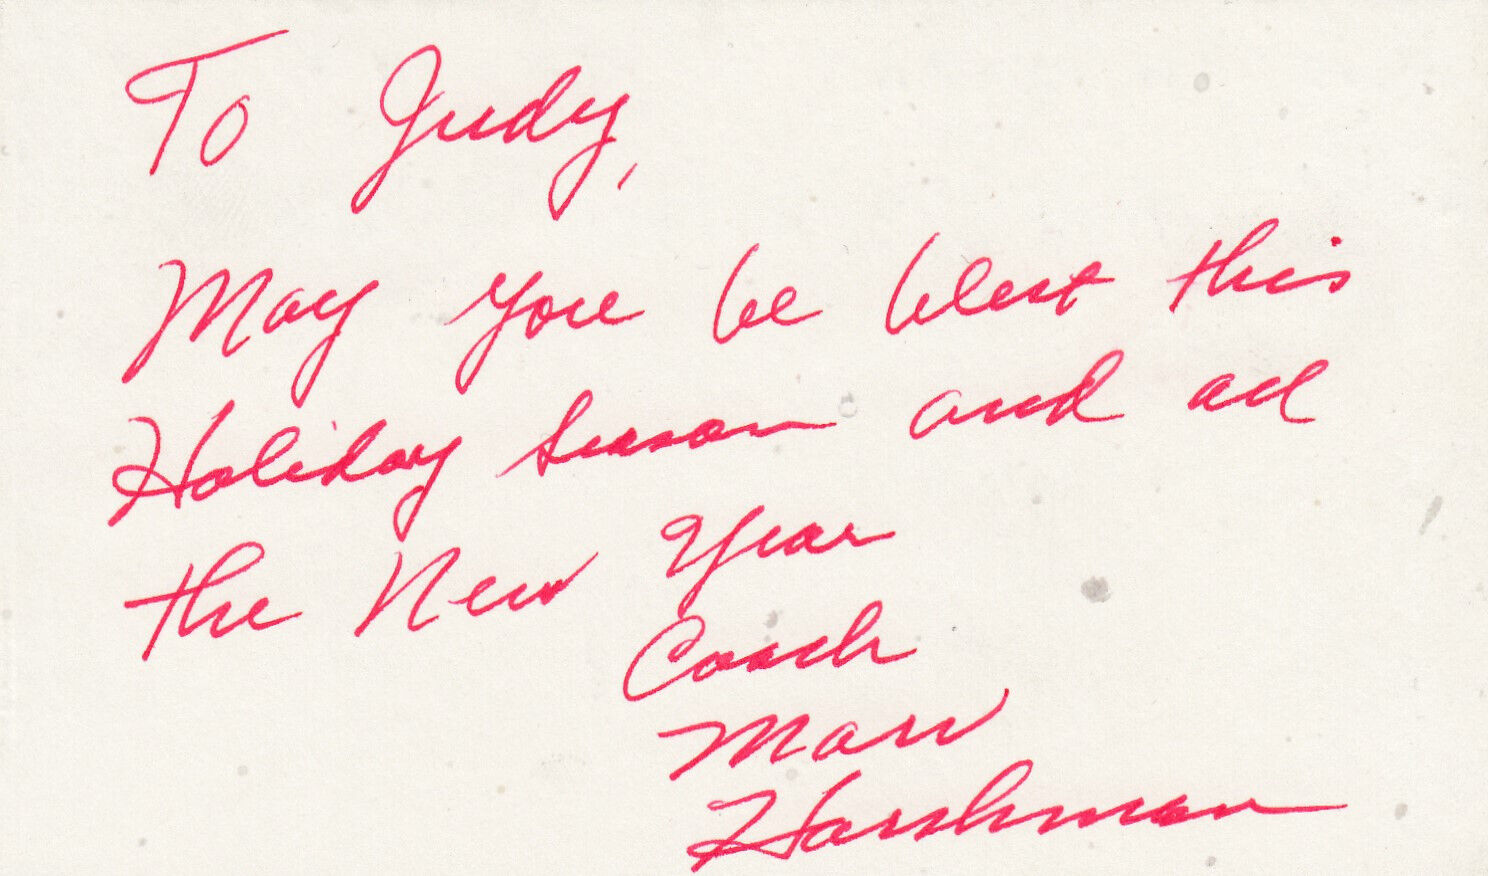 To Judy,
May you be blest this
Holiday Season and all
the New Year
Coach
Marv
Harshman